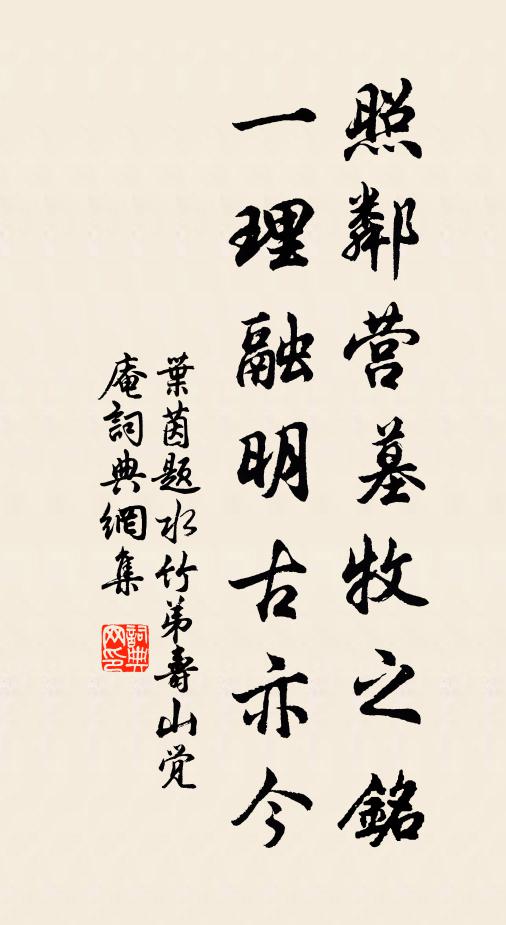 照鄰营墓牧之銘
一理融明古亦今
葉茵题水竹弟壽山觉
庵詞典網集
詞典
网印